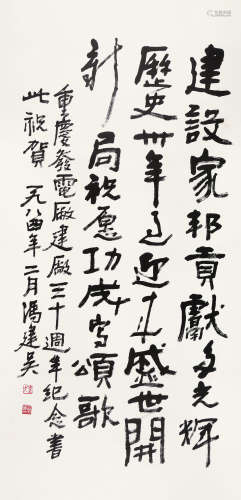 建設家邦貢獻多光輝
歷史卅年過迎来盛世開
新局祝愿功成写頌歌
重慶發電廠建廠三十週年纪念書
此祝賀 一九八四年二月馮建吴